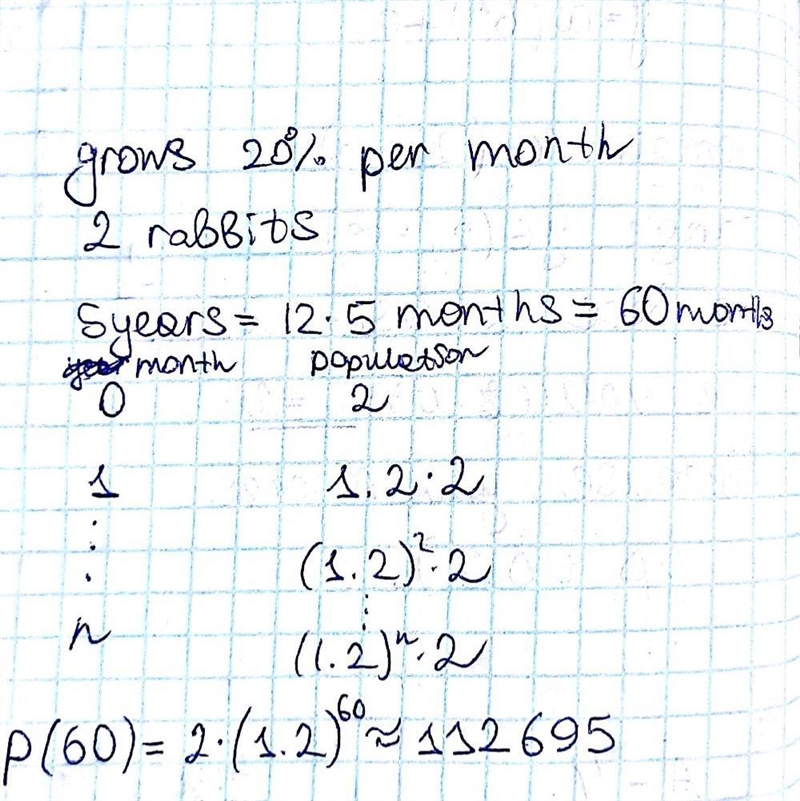 grows 20% per month
2 rabbits
5years = 12·5 months = 60 months
month population
0 2
1 1.2·2
⋮ (1.2)²·2
⋮
n (1.2)ⁿ·2
P(60) = 2·(1.2)⁶⁰ ≈ 112695